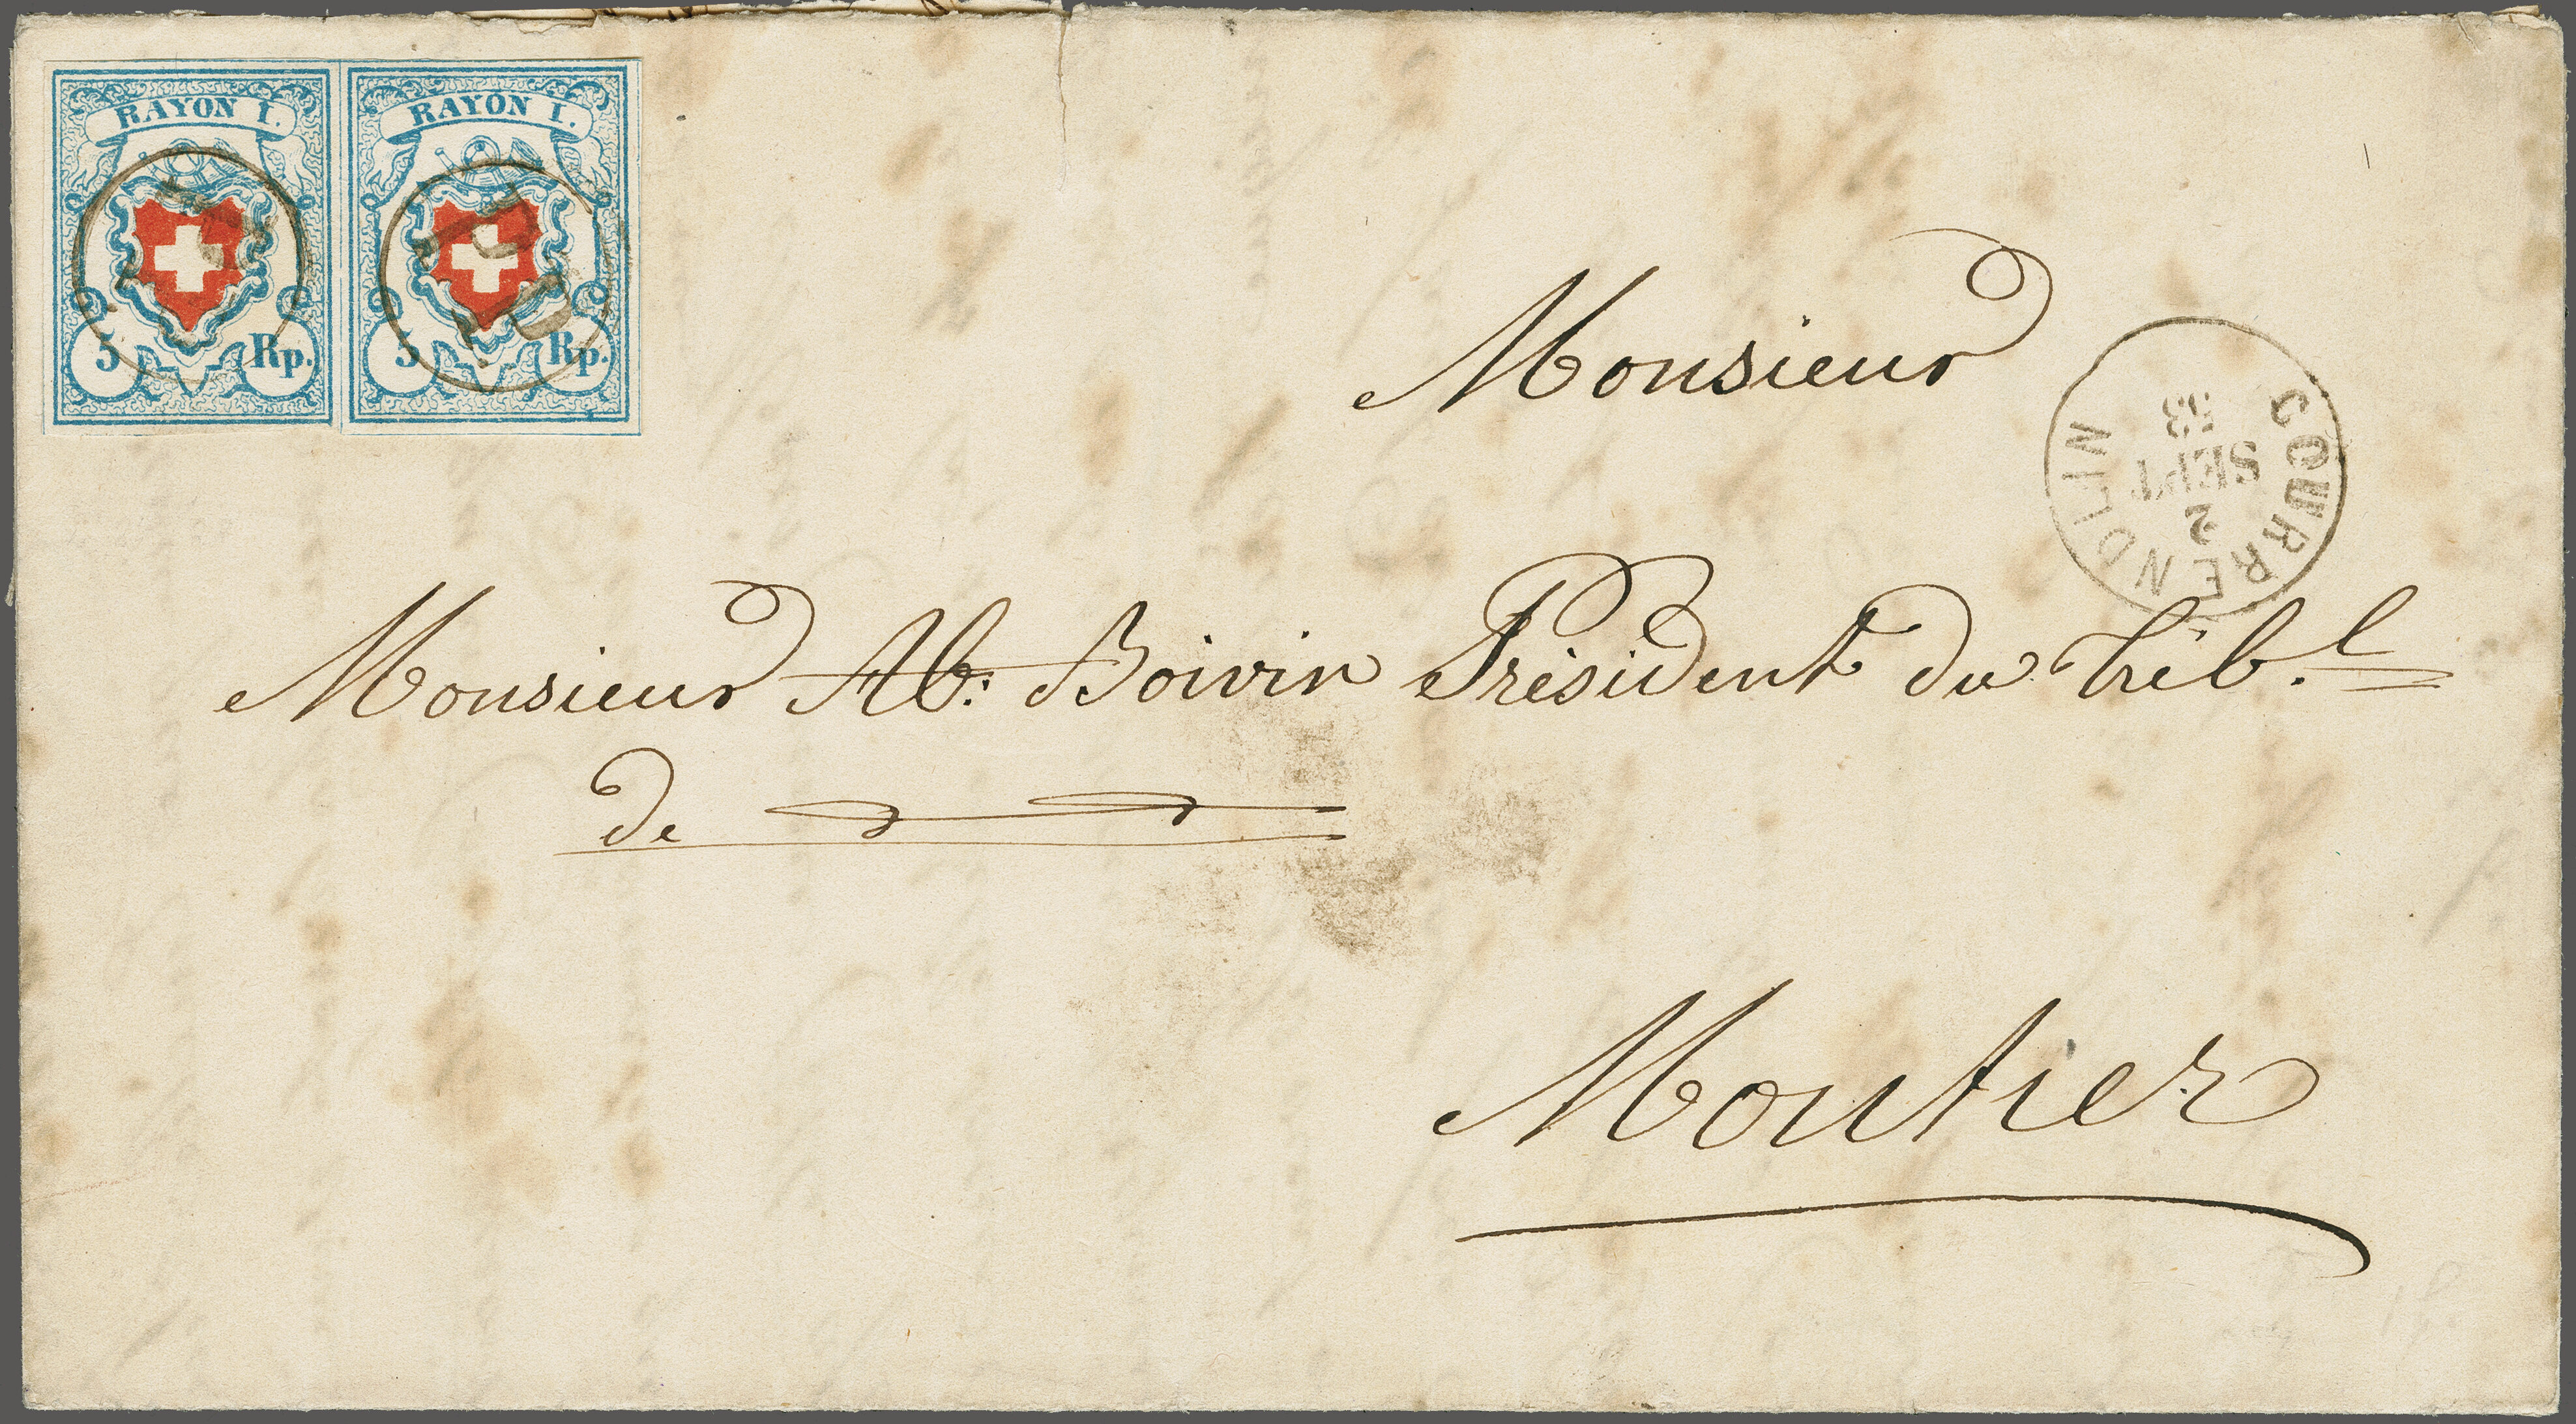 RAYON I.
5 Rp.
RAYON I.
5 Rp.
P.P.
P.P.
COURRENDLIN
2
SEPT
53
Monsieur
Monsieur Ab: Boivin Président du Trib.l
de
Moutier